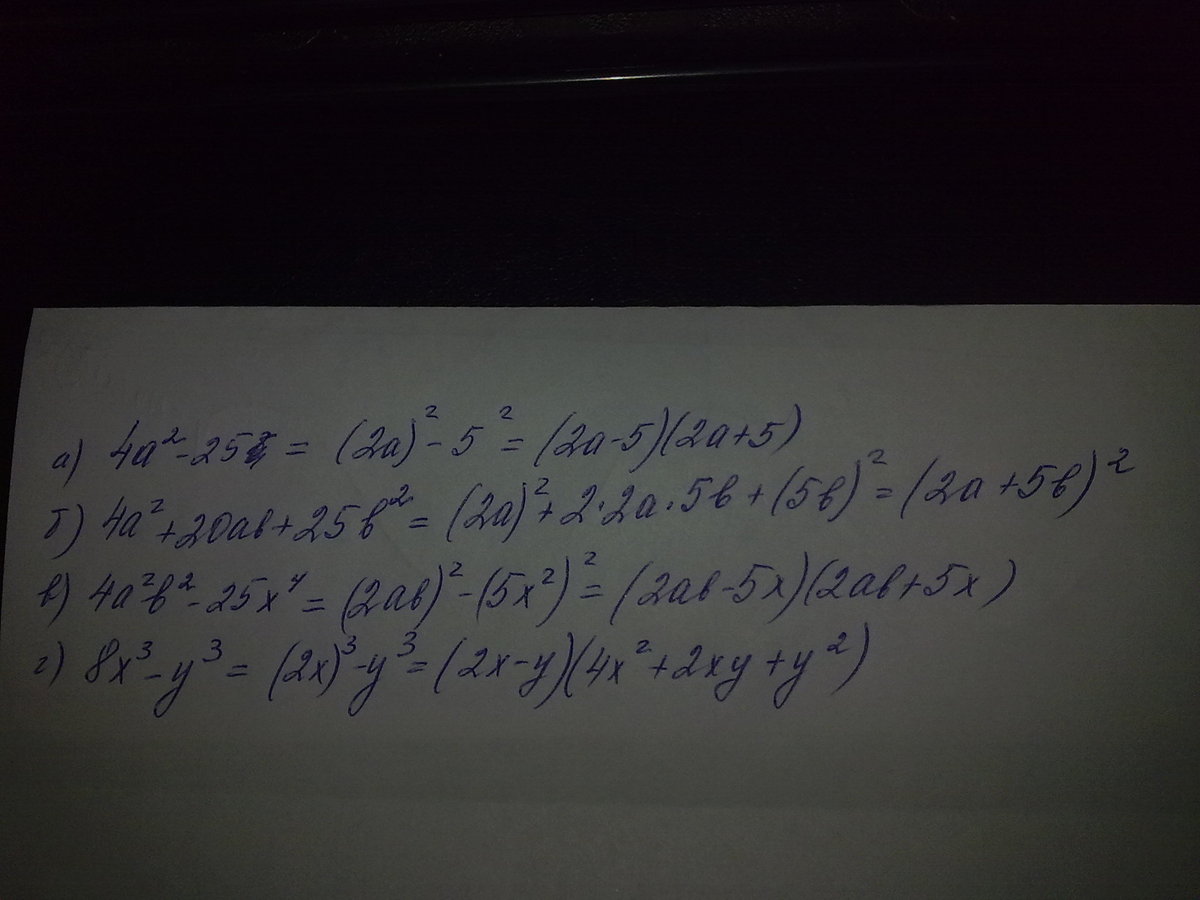 а) 4a² - 25 = (2a)² - 5² = (2a-5)(2a+5)
б) 4a² + 20ab + 25b² = (2a)² + 2·2a·5b + (5b)² = (2a+5b)²
в) 4a²b² - 25x⁴ = (2ab)² - (5x²)² = (2ab-5x)(2ab+5x)
г) 8x³ - y³ = (2x)³ - y³ = (2x-y)(4x² + 2xy + y²)